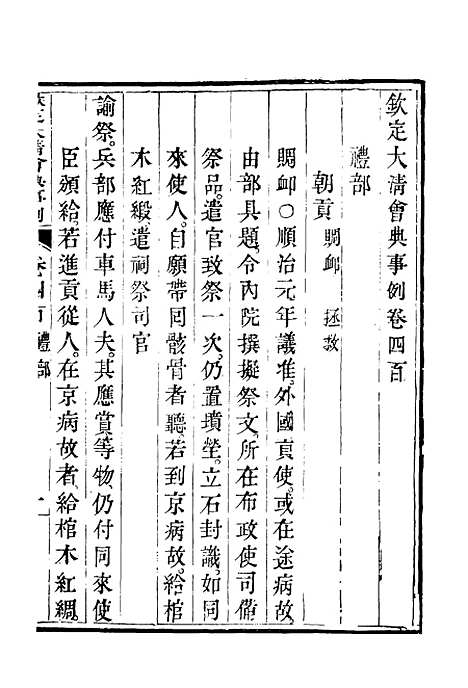 欽定大清會典事例卷四百
禮部
朝貢 賙卹 拯救
賙卹○順治元年議准。外國貢使。或在途病故。
由部具題。令內院撰擬祭文。所在布政使司備
祭品。遣官致祭一次。仍置墳塋。立石封識。如同
來使人。自願帶回骸骨者聽。若到京病故。給棺
木紅緞。遣祠祭司官
諭祭。兵部應付車馬人夫。其應賞等物。仍付同來使
臣頒給。若進貢從人。在京病故者。給棺木紅綢。
欽定大清會典事例 卷四百 禮部 一